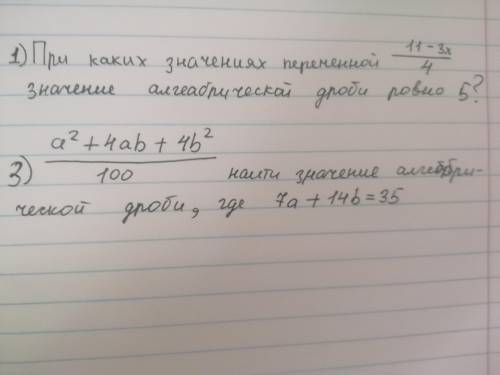 1) При каких значениях переменной (11-3x)/4
значение алгебраической дроби ровно 5?
3) (a²+4ab+4b²)/100 найти значение алгебри-
ческой дроби, где 7a+14b=35